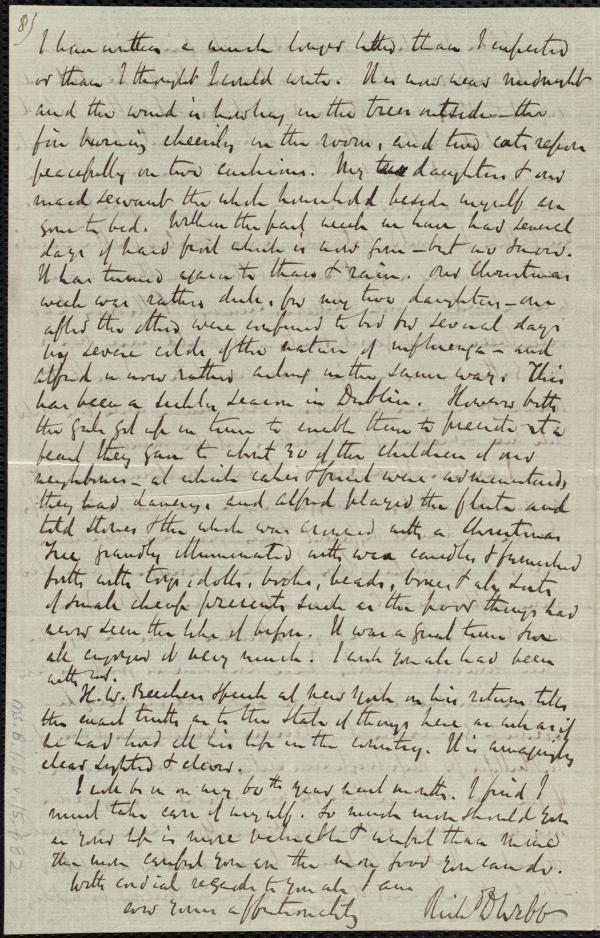 8)
I have written a much longer letter than I expected
or than I thought I could write. It is now near midnight
and the wind is howling in the trees outside - the
fire burning cheerily in the room, and two cats repose
peacefully on two cushions. My two daughters & our
maid servant the whole household beside myself are
gone to bed. Within the past week we have had several
days of hard frost which is now gone - but no snow.
It has turned again to thaw & rain. Our Christmas
week was rather dull, for my two daughters - one
after the other were confined to bed for several days
by severe colds of the nature of influenza - and
Alfred is now rather ailing in the same way. This
has been a sickly season in Dublin. However both
the girls got up in time to enable them to preside at a
feast they gave to about 30 of the children of our
neighbours - at which cakes & fruit were administered,
they had dancing, and Alfred played the flute and
told stories & the whole was crowned with a Christmas
Tree grandly illuminated with wax candles & furnished
forth with toys, dolls, books, beads, boxes & all sorts
of small cheap presents such as the poor things had
never seen the like of before. It was a great time &
all enjoyed it very much. I wish you all had been
with us.
H. W. Beecher's speech at New York on his return tells
the exact truth as to the state of things here as much as if
he had lived all his life in the country. It is amazingly
clear sighted & clever.
I will be in my 60th year next month. I find I
must take care of myself. So much more should you
as your life is more valuable & useful than mine
the more careful you are the more good you can do.
With cordial regards to you all I am
ever yours affectionately
Richd D Webb
Ms. B.1.6 v.15 p. 82